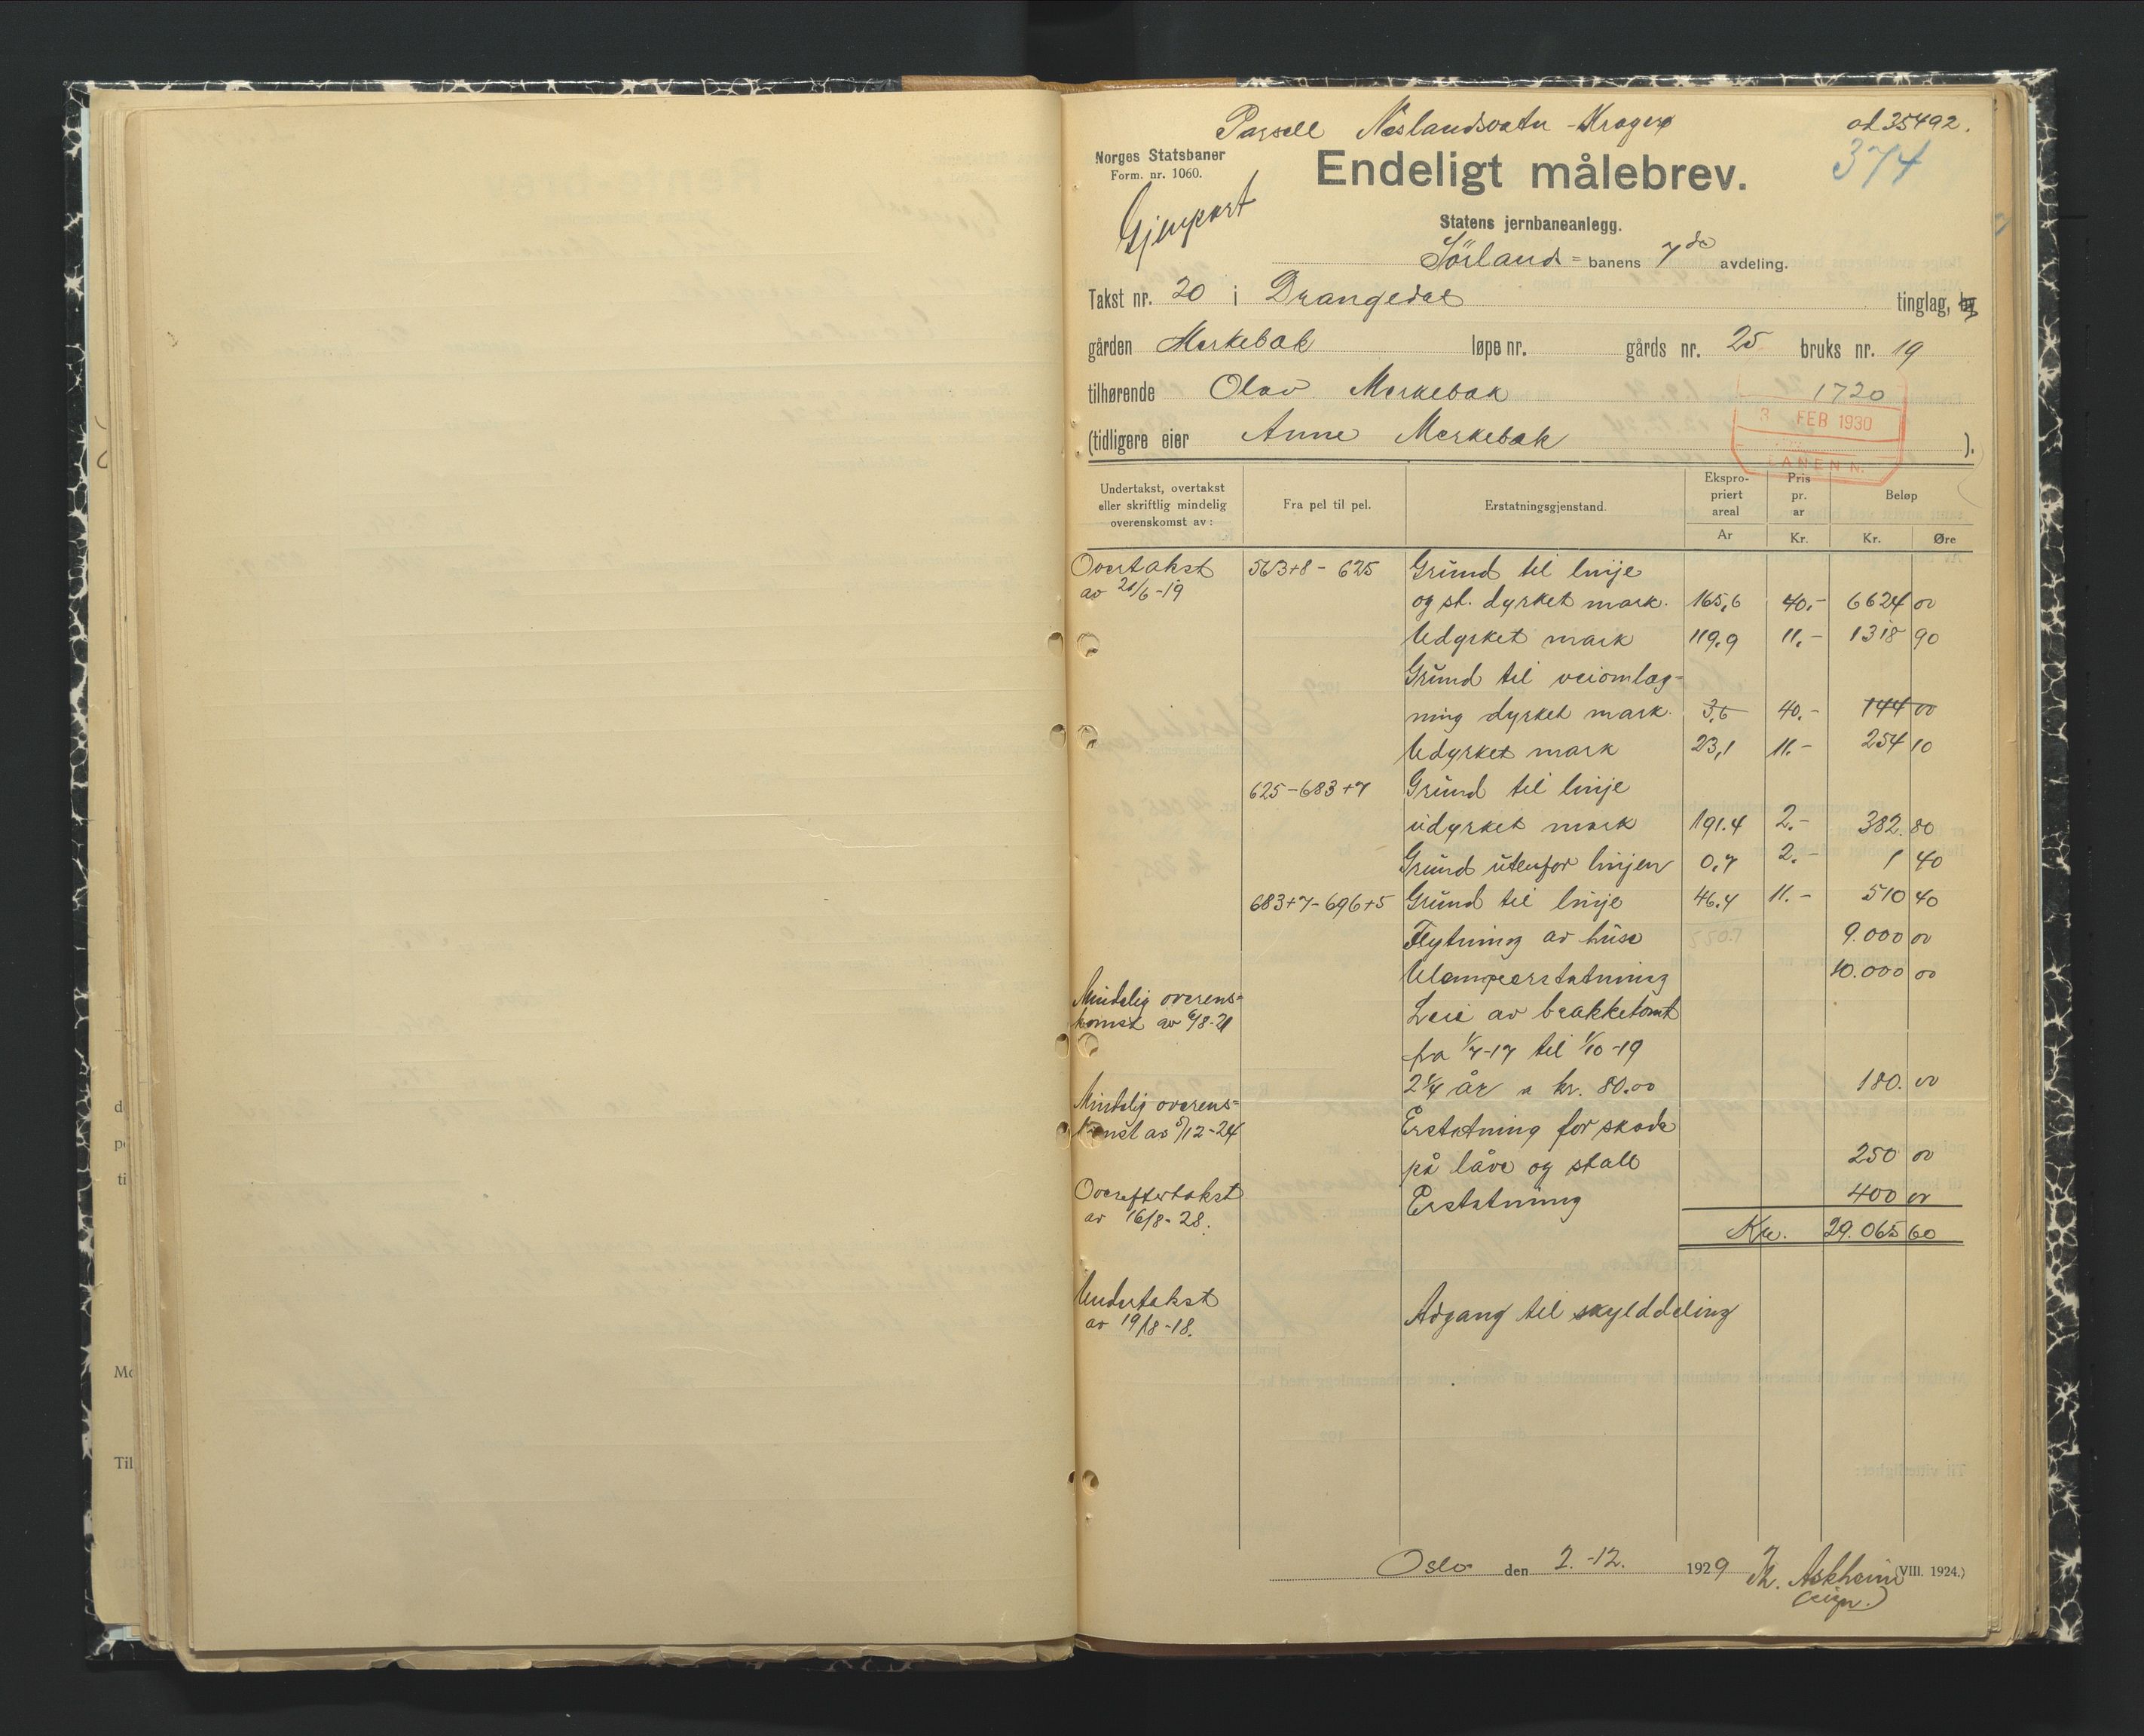 Parsell Neslandsvatn - Kragerø
ad 35492.
374
Norges Statsbaner
Form. nr. 1060.
Endeligt målebrev.
Gjenpart
Statens jernbaneanlegg.
Sørland= banens 7de avdeling.
Takst nr. 20 i Drangedal tinglag, by
gården Merkebæk løpe nr. gårds nr. 25 bruks nr. 19
tilhørende Olav Merkebæk 1720
3 FEB 1930
(tidligere eier Anne Merkebæk ).
Undertakst, overtakst eller skriftlig mindelig overenskomst av: Fra pel til pel. Erstatningsgjenstand. Ekspropriert areal Pris pr. ar Beløp
Ar Kr. Kr. Øre
Overtakst 563+8 - 625 Grund til linje
av 21/6-19 og st. dyrket mark. 165,6 40,- 6624 00
Udyrket mark 119,9 11.- 1318 90
Grund til veiomlæg-
ning dyrket mark. 3,6 40.- 144 00
Udyrket mark 23,1 11.- 254 10
625-683+7 Grund til linje
udyrket mark 191.4 2.- 382.80
Grund utenfor linjen 0.7 2.- 1 40
683+7-696+5 Grund til linje 46.4 11.- 510 40
Flytning av huse 550.7 9.000 00
Ulempeerstatning 10.000 00
Mindelig overens= Leie av brakketomt
komst av 6/8-21 fra 1/7-17 til 1/10-19
2 1/4 år a kr. 80.00 180. 00
Mindelig overens= Erstatning for skade
komst av 5/12-24 på låve og stall 250 00
Overeftertakst Erstatning 400 00
av 16/8-28.
Kr. 29.065 60
Undertakst Adgang til skylddeling
av 19/8-18.
Oslo den 2.-12. 1929 Th. Askheim (VIII. 1924.)
(sign.)